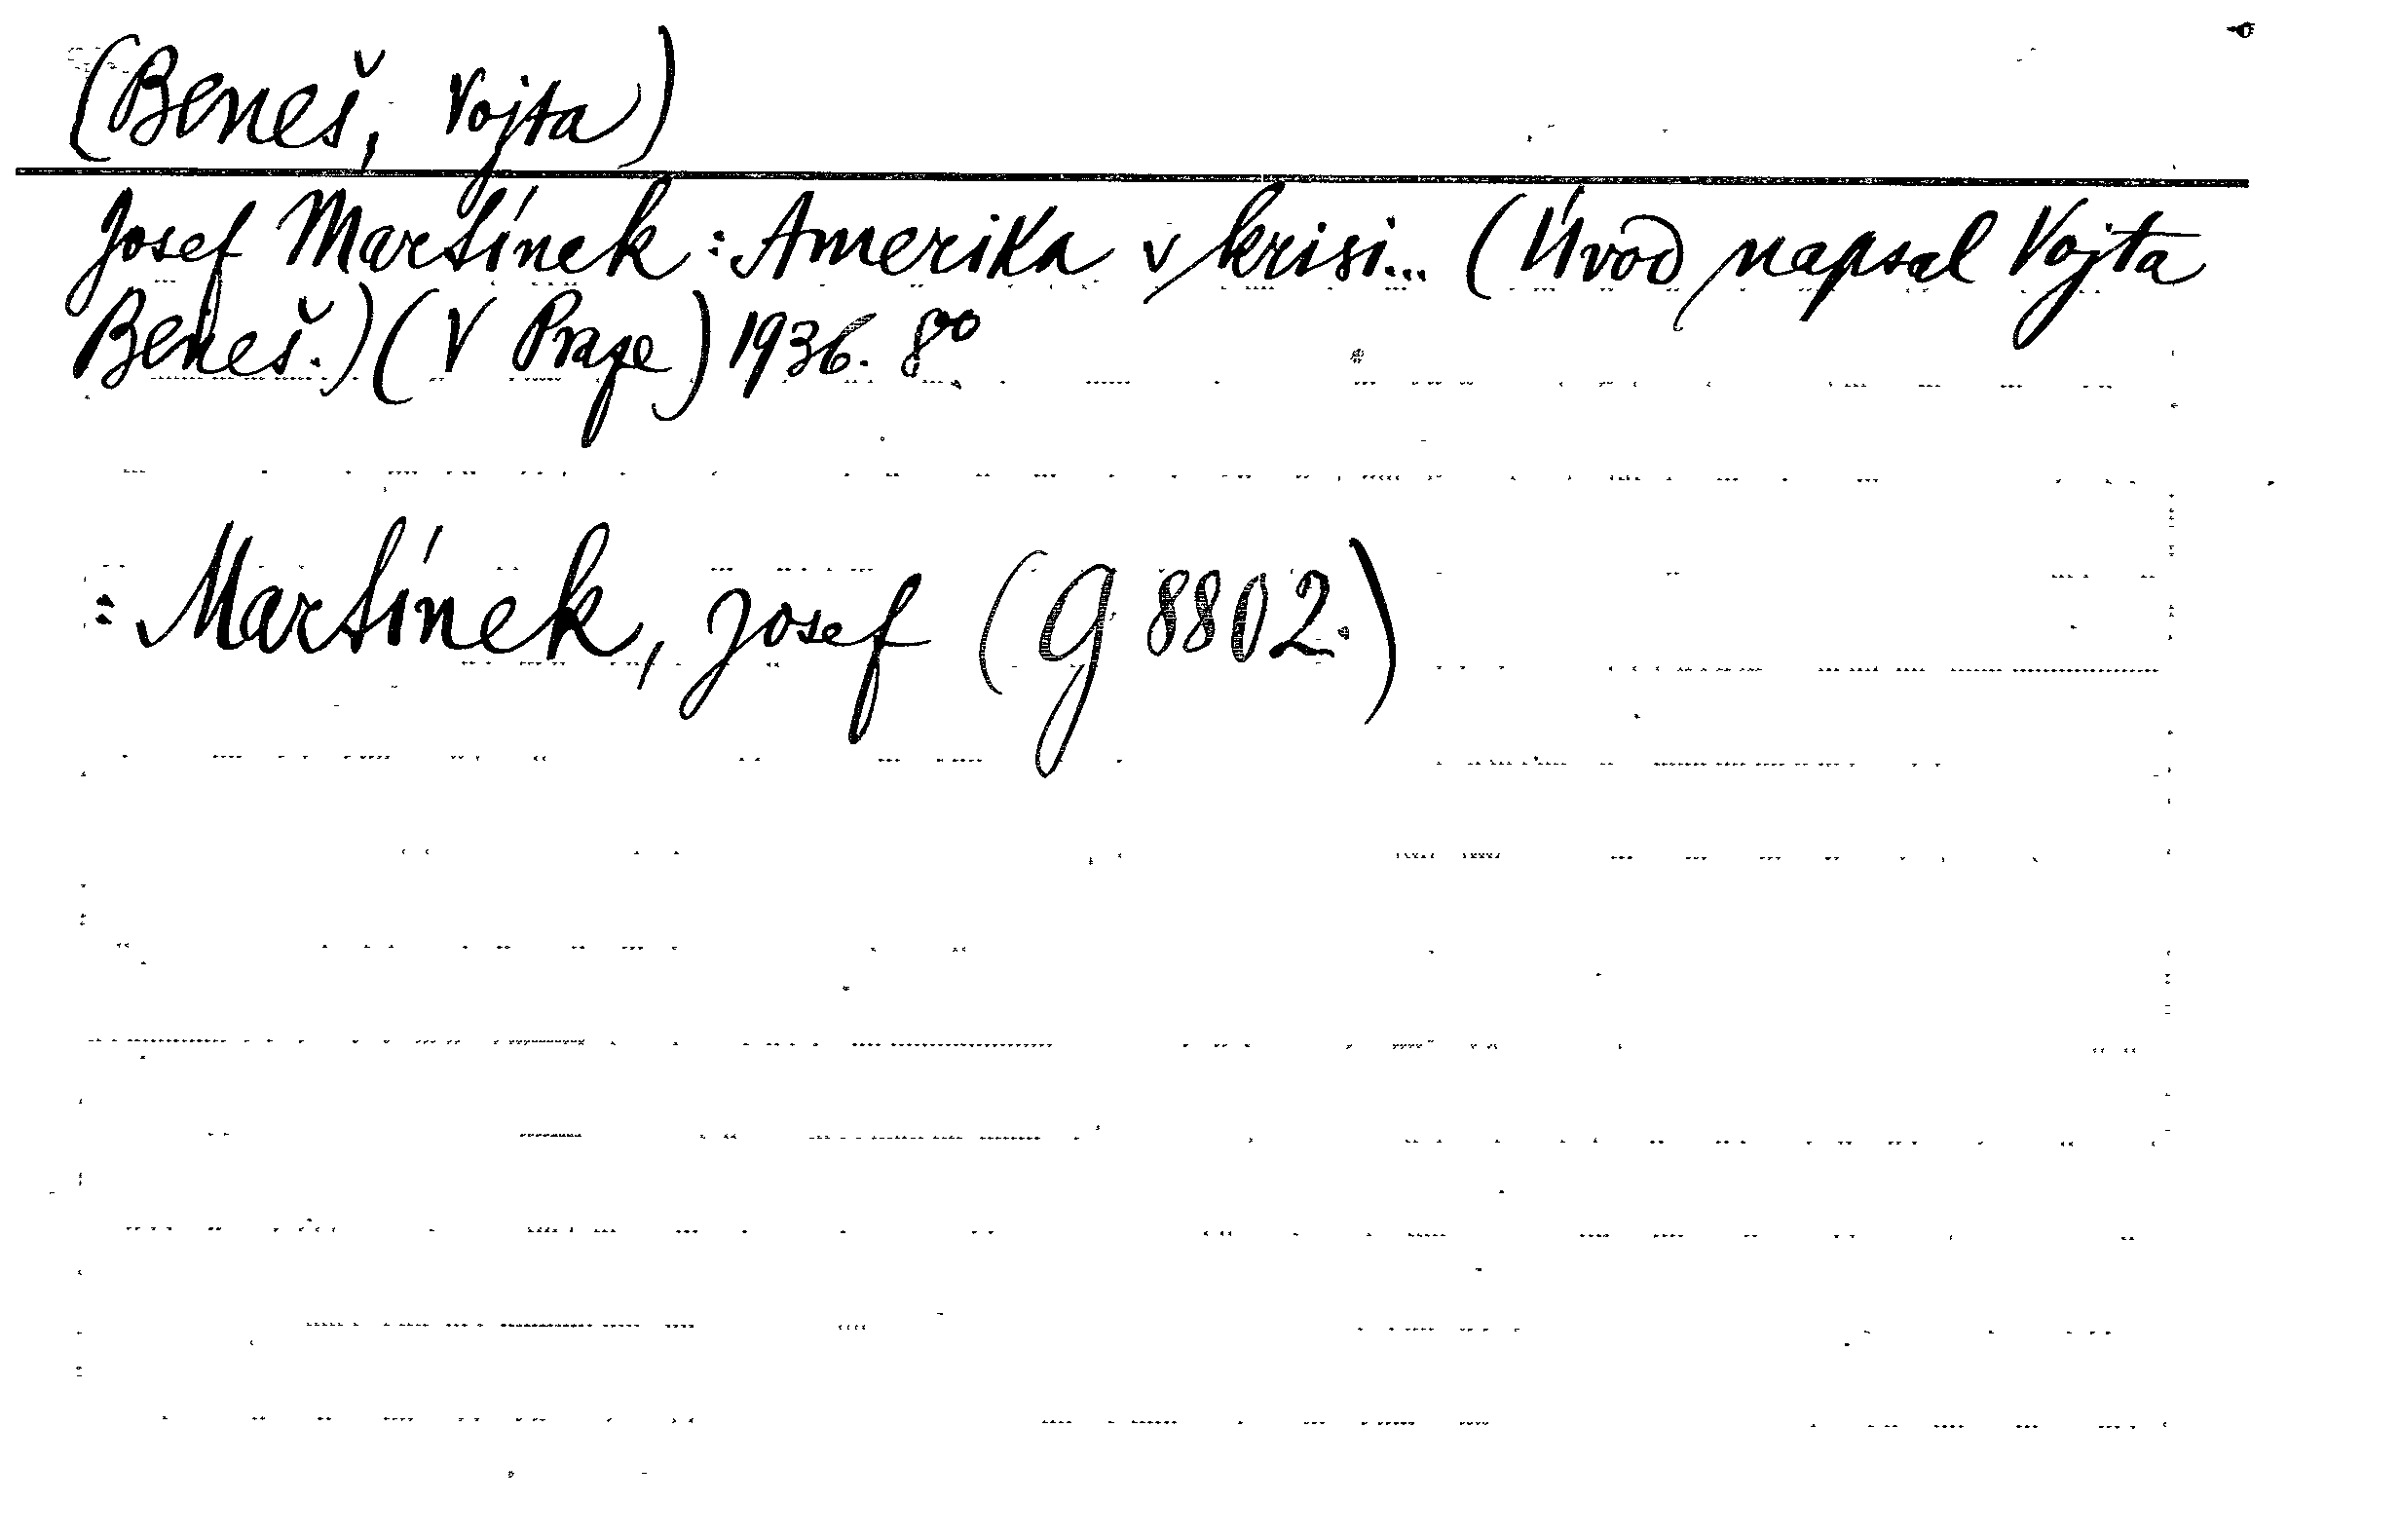 (Beneš, Vojta)
Josef Martínek: Amerika v krisi... (Úvod napsal Vojta
Beneš.) (V Praze) 1936. 8°
: Martínek, Josef (G 8802.)